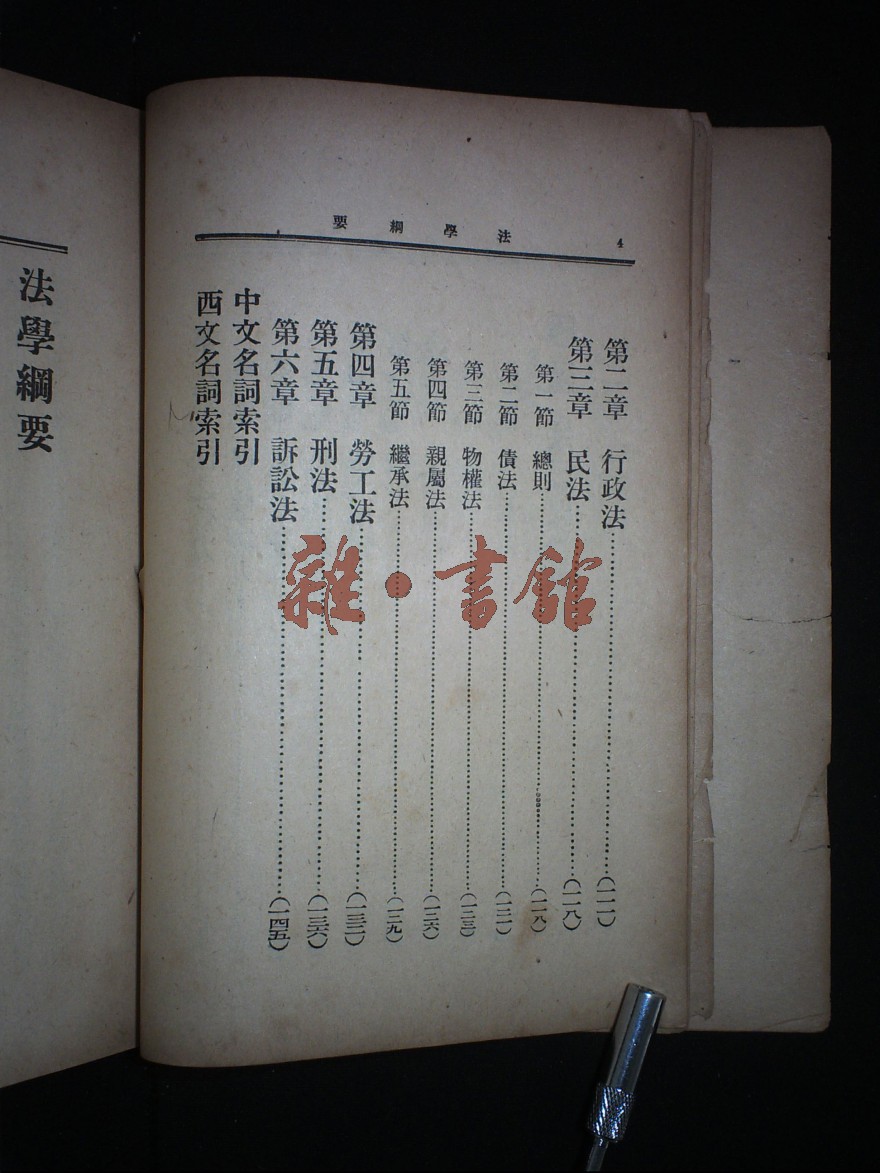 4 法學綱要
第二章 行政法……(一一一)
第三章 民法……(一一八)
第一節 總則……(一一八)
第二節 債法……(一二一)
第三節 物權法……(一二三)
第四節 親屬法……(一二六)
第五節 繼承法……(一二九)
第四章 勞工法……(一三二)
第五章 刑法……(一三六)
第六章 訴訟法……(一四五)
中文名詞索引
西文名詞索引
法學綱要
雜·書館